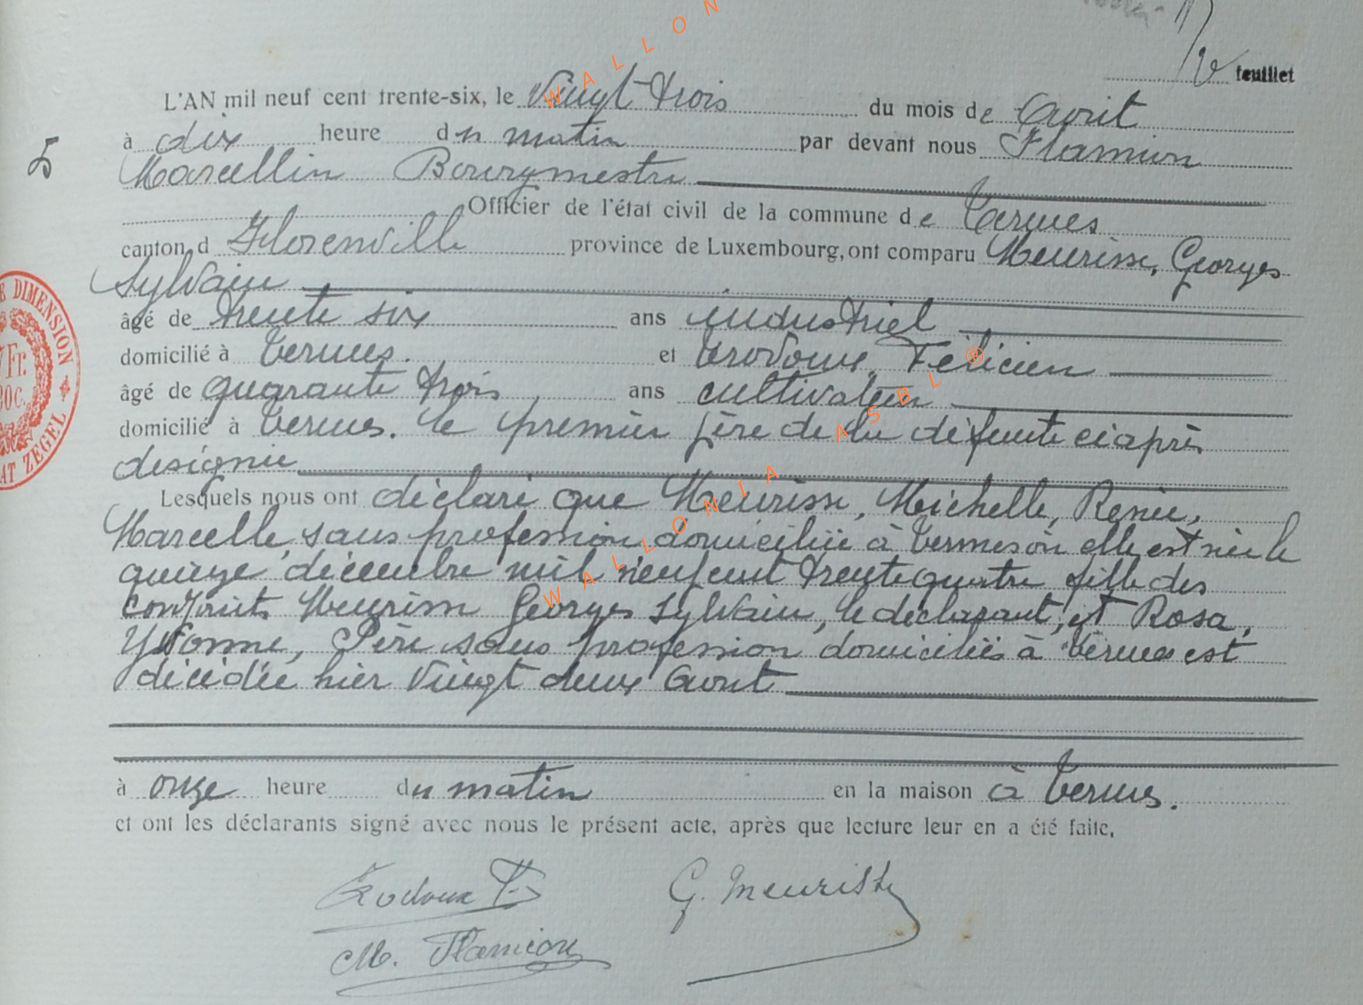 feuillet
L'AN mil neuf cent trente-six, le Vingt trois du mois de Avril
5
à dix heure du matin par devant nous Flamion
Marcellin Bourgmestre
Officier de l'état civil de la commune de Termes
canton d Florenville province de Luxembourg, ont comparu Meurisse, Georges
Sylvain
âgé de trente six ans industriel
domicilié à Termes. et Frodoux, Félicien
âgé de quarante trois ans cultivateur
domicilié à Termes. le premier père de la défunte ci après
désignée
Lesquels nous ont déclaré que Meurisse, Michelle, Renée,
Marcelle, sans profession domiciliée à Termes où elle est née le
quinze décembre mil neuf cent trente quatre fille des
conjoints Meurisse Georges Sylvain, le déclarant, et Rosa,
Yvonne, sans profession domiciliés à Termes est
décédée hier Vingt deux Avril
à onze heure du matin en la maison à Termes.
et ont les déclarants signé avec nous le présent acte, après que lecture leur en a été faite,
G. Meurisse
M. Flamion
E DIMENSION
Fr.
80c.
AT ZEGEL
WALLONIA ASBL ®
WALLON